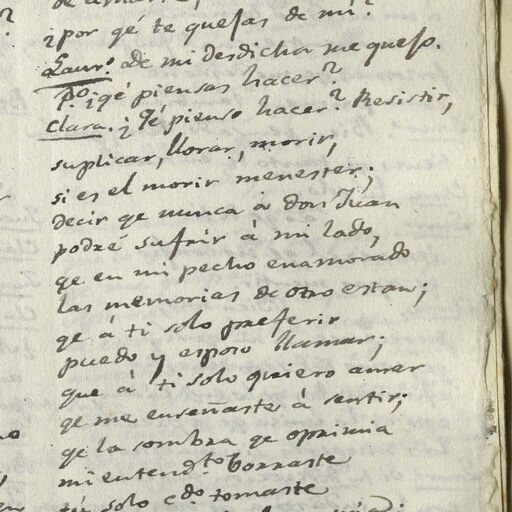 ¿por qé te quejas de mí?
Laur.º de mi desdicha me quejo.
Po ¿qé piensas hacer?
Clara. ¿Qé pienso hacer? Resistir,
suplicar, llorar, morir,
si es el morir menester;
decir qe nunca á don Juan
podré sufrir á mi lado,
qe en mi pecho enamorado
las memorias de otro estan;
qe á ti solo preferir
puedo y esposo llamar;
que á ti solo quiero amar
qe me enseñaste á sentir;
qe la sombra qe oprimia
mi entendto borraste
tú solo cdo tomaste